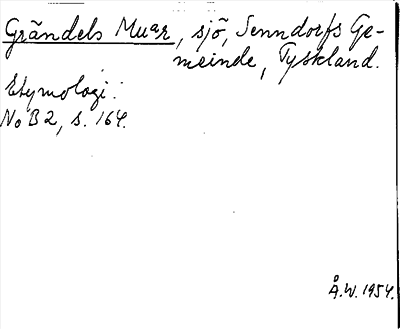 Grändels Muar, sjö, Senndorfs Ge-
meinde, Tyskland.
Etymologi:
NoB 2, s. 164.
Å.W. 1954.